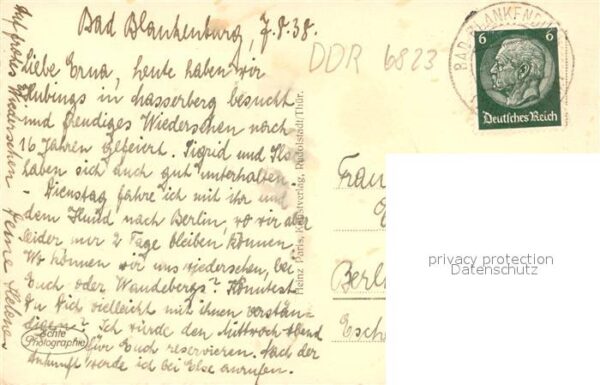 Bad Blankenburg, 7.8.38.
Liebe Erna, heute haben wir
Hubings in Wasserberg besucht
und freudiges Wiedersehen nach
16 Jahren gefeiert. Sigrid und Ilse
haben sich auch gut unterhalten.
Dienstag fahre ich mit ihr und
dem Hund nach Berlin, wo wir aber
leider nur 2 Tage bleiben können.
Wo können wir uns wiedersehen, bei
Euch oder Wandebergs? Könntest
Du Dich vielleicht mit ihnen verstän-
digen? Ich würde den Mittwoch abend
für Euch reservieren. Nach der
Ankunft werde ich bei Else anrufen.
Auf frohes Wiedersehen Deine Helene
Echte
Photographie
Heinz Paris, Kunstverlag, Rudolstadt/Thür.
DDR 6823
BAD BLANKENBURG
6 6
Deutsches Reich
Frau
Berlin
Esch
privacy protection
Datenschutz